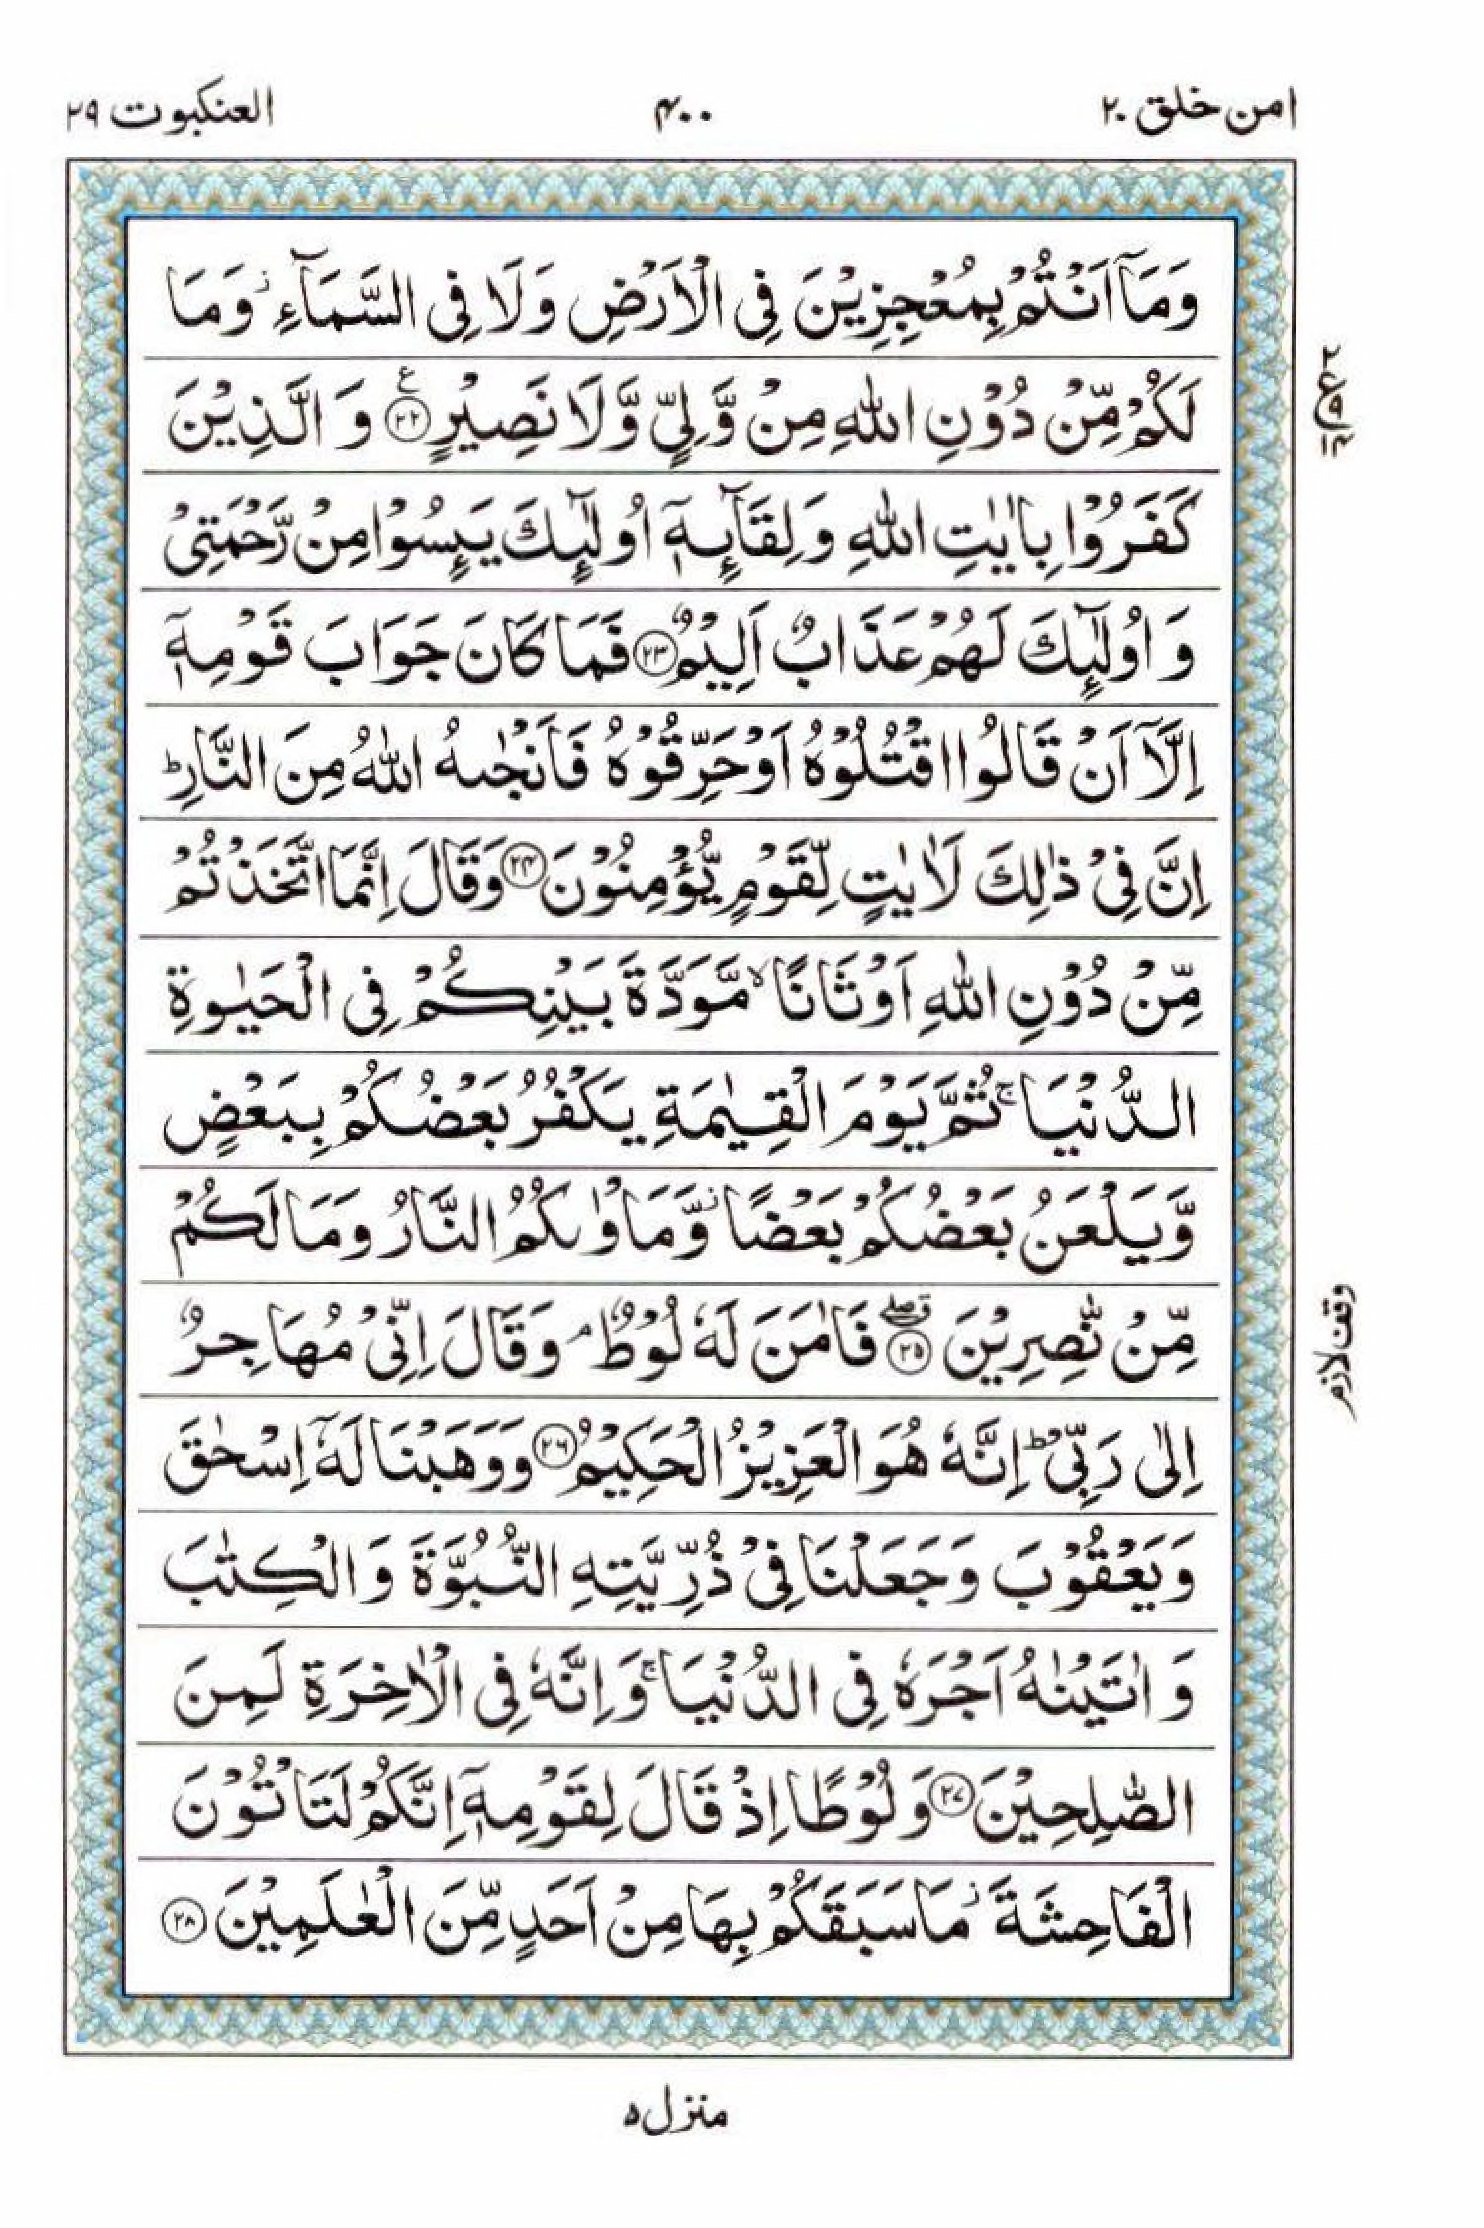 امن خلق ۲۰
۴۰۰
العنکبوت ۲۹
وَمَاۤ اَنْتُمْ بِمُعْجِزِيْنَ فِى الْاَرْضِ وَلَا فِى السَّمَآءِ ؗ وَمَا
لَكُمْ مِّنْ دُوْنِ اللّٰهِ مِنْ وَّلِىٍّ وَّلَا نَصِيْرٍ ۧ ﴿۲۲﴾ وَ الَّذِيْنَ
كَفَرُوْا بِاٰيٰتِ اللّٰهِ وَلِقَآئِهٖۤ اُولٰٓئِكَ يَئِسُوْا مِنْ رَّحْمَتِىْ
وَ اُولٰٓئِكَ لَهُمْ عَذَابٌ اَلِيْمٌ ﴿۲۳﴾ فَمَا كَانَ جَوَابَ قَوْمِهٖۤ
اِلَّاۤ اَنْ قَالُوا اقْتُلُوْهُ اَوْ حَرِّقُوْهُ فَاَنْجٰىهُ اللّٰهُ مِنَ النَّارِ ؕ
اِنَّ فِىْ ذٰلِكَ لَاٰيٰتٍ لِّقَوْمٍ يُّؤْمِنُوْنَ ﴿۲۴﴾ وَقَالَ اِنَّمَا اتَّخَذْتُمْ
مِّنْ دُوْنِ اللّٰهِ اَوْثَانًا ۙ مَّوَدَّةَ بَيْنِكُمْ فِى الْحَيٰوةِ
الدُّنْيَا ۚ ثُمَّ يَوْمَ الْقِيٰمَةِ يَكْفُرُ بَعْضُكُمْ بِبَعْضٍ
وَّيَلْعَنُ بَعْضُكُمْ بَعْضًا ؗ وَّمَاْوٰىكُمُ النَّارُ وَمَا لَكُمْ
مِّنْ نّٰصِرِيْنَ ﴿۲۵﴾ ۖ فَاٰمَنَ لَهٗ لُوْطٌ ۘ وَقَالَ اِنِّىْ مُهَاجِرٌ
اِلٰى رَبِّىْ ؕ اِنَّهٗ هُوَ الْعَزِيْزُ الْحَكِيْمُ ﴿۲۶﴾ وَوَهَبْنَا لَهٗۤ اِسْحٰقَ
وَيَعْقُوْبَ وَجَعَلْنَا فِىْ ذُرِّيَّتِهِ النُّبُوَّةَ وَالْكِتٰبَ
وَ اٰتَيْنٰهُ اَجْرَهٗ فِى الدُّنْيَا ۚ وَاِنَّهٗ فِى الْاٰخِرَةِ لَمِنَ
الصّٰلِحِيْنَ ﴿۲۷﴾ وَلُوْطًا اِذْ قَالَ لِقَوْمِهٖۤ اِنَّكُمْ لَتَاْتُوْنَ
الْفَاحِشَةَ ؗ مَا سَبَقَكُمْ بِهَا مِنْ اَحَدٍ مِّنَ الْعٰلَمِيْنَ ﴿۲۸﴾
۲ ع ۹ ۱۴
وقف لازم
منزل ۵